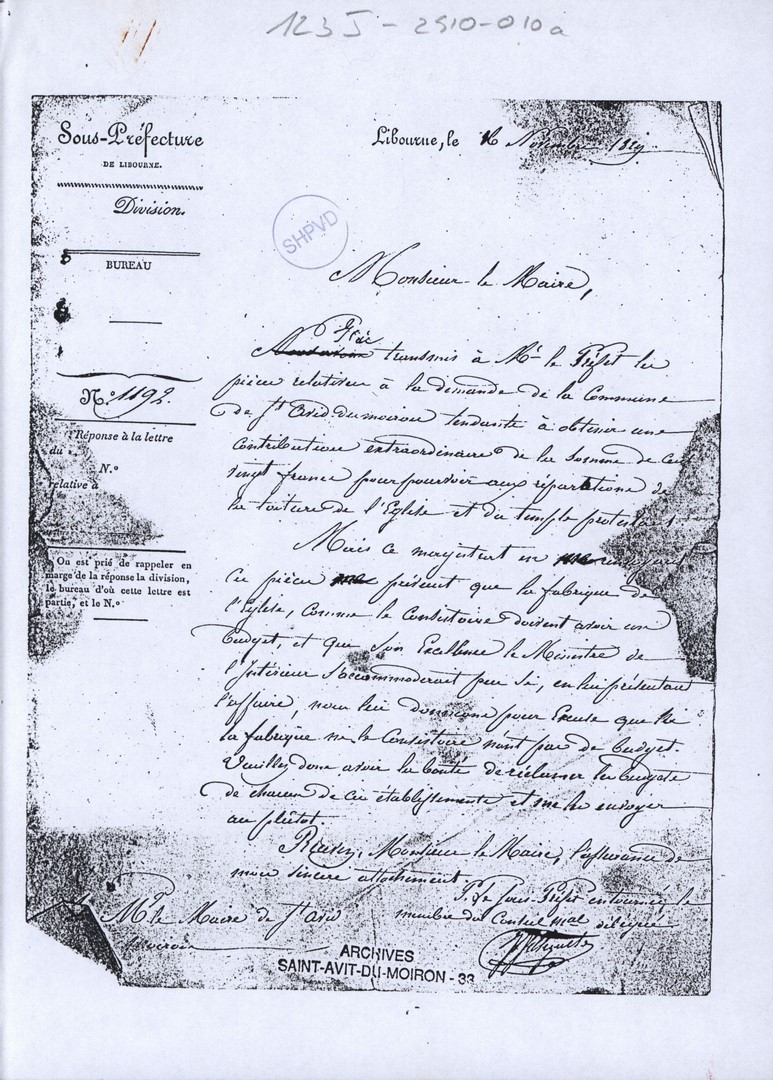 123 J - 2S10-010a
Sous-Préfecture
DE LIBOURNE.
Division.
BUREAU
N.º 1192.
Réponse à la lettre
du
N.º
relative à
On est prié de rappeler en
marge de la réponse la division,
le bureau d'où cette lettre est
partie, et le N.º
Libourne, le 16 Novembre 1819.
SHPVD
Monsieur le Maire,
J'ai transmis à Mr le Préfet les
pièces relatives à la demande de la Commune
de St Avid du moiron tendante à obtenir une
contribution extraordinaire de la somme de
vingt francs pour pourvoir aux réparations de
la toiture de l'Eglise et du temple
Mais ce magistrat en
ces pièces prévient que la fabrique de
l'Eglise, comme le Consistoire doivent avoir un
budget, et que Son Excellence le Ministre de
l'Intérieur s'accommoderait peu si, en lui présentant
l'affaire, nous lui donnions pour Excuse que ni
la fabrique ni le Consistoire n'ont pas de budget.
Veuillez donc avoir la bonté de réclamer les budgets
de chacun de ces établissements et me les envoyer
au plutot.
Recevez, Monsieur le Maire, l'assurance de
mon sincère attachement.
P. le Sous-Préfet en tournée, le
membre du Conseil délégué
Mr le Maire de St Avid
moiron
ARCHIVES
SAINT-AVIT-DU-MOIRON - 33